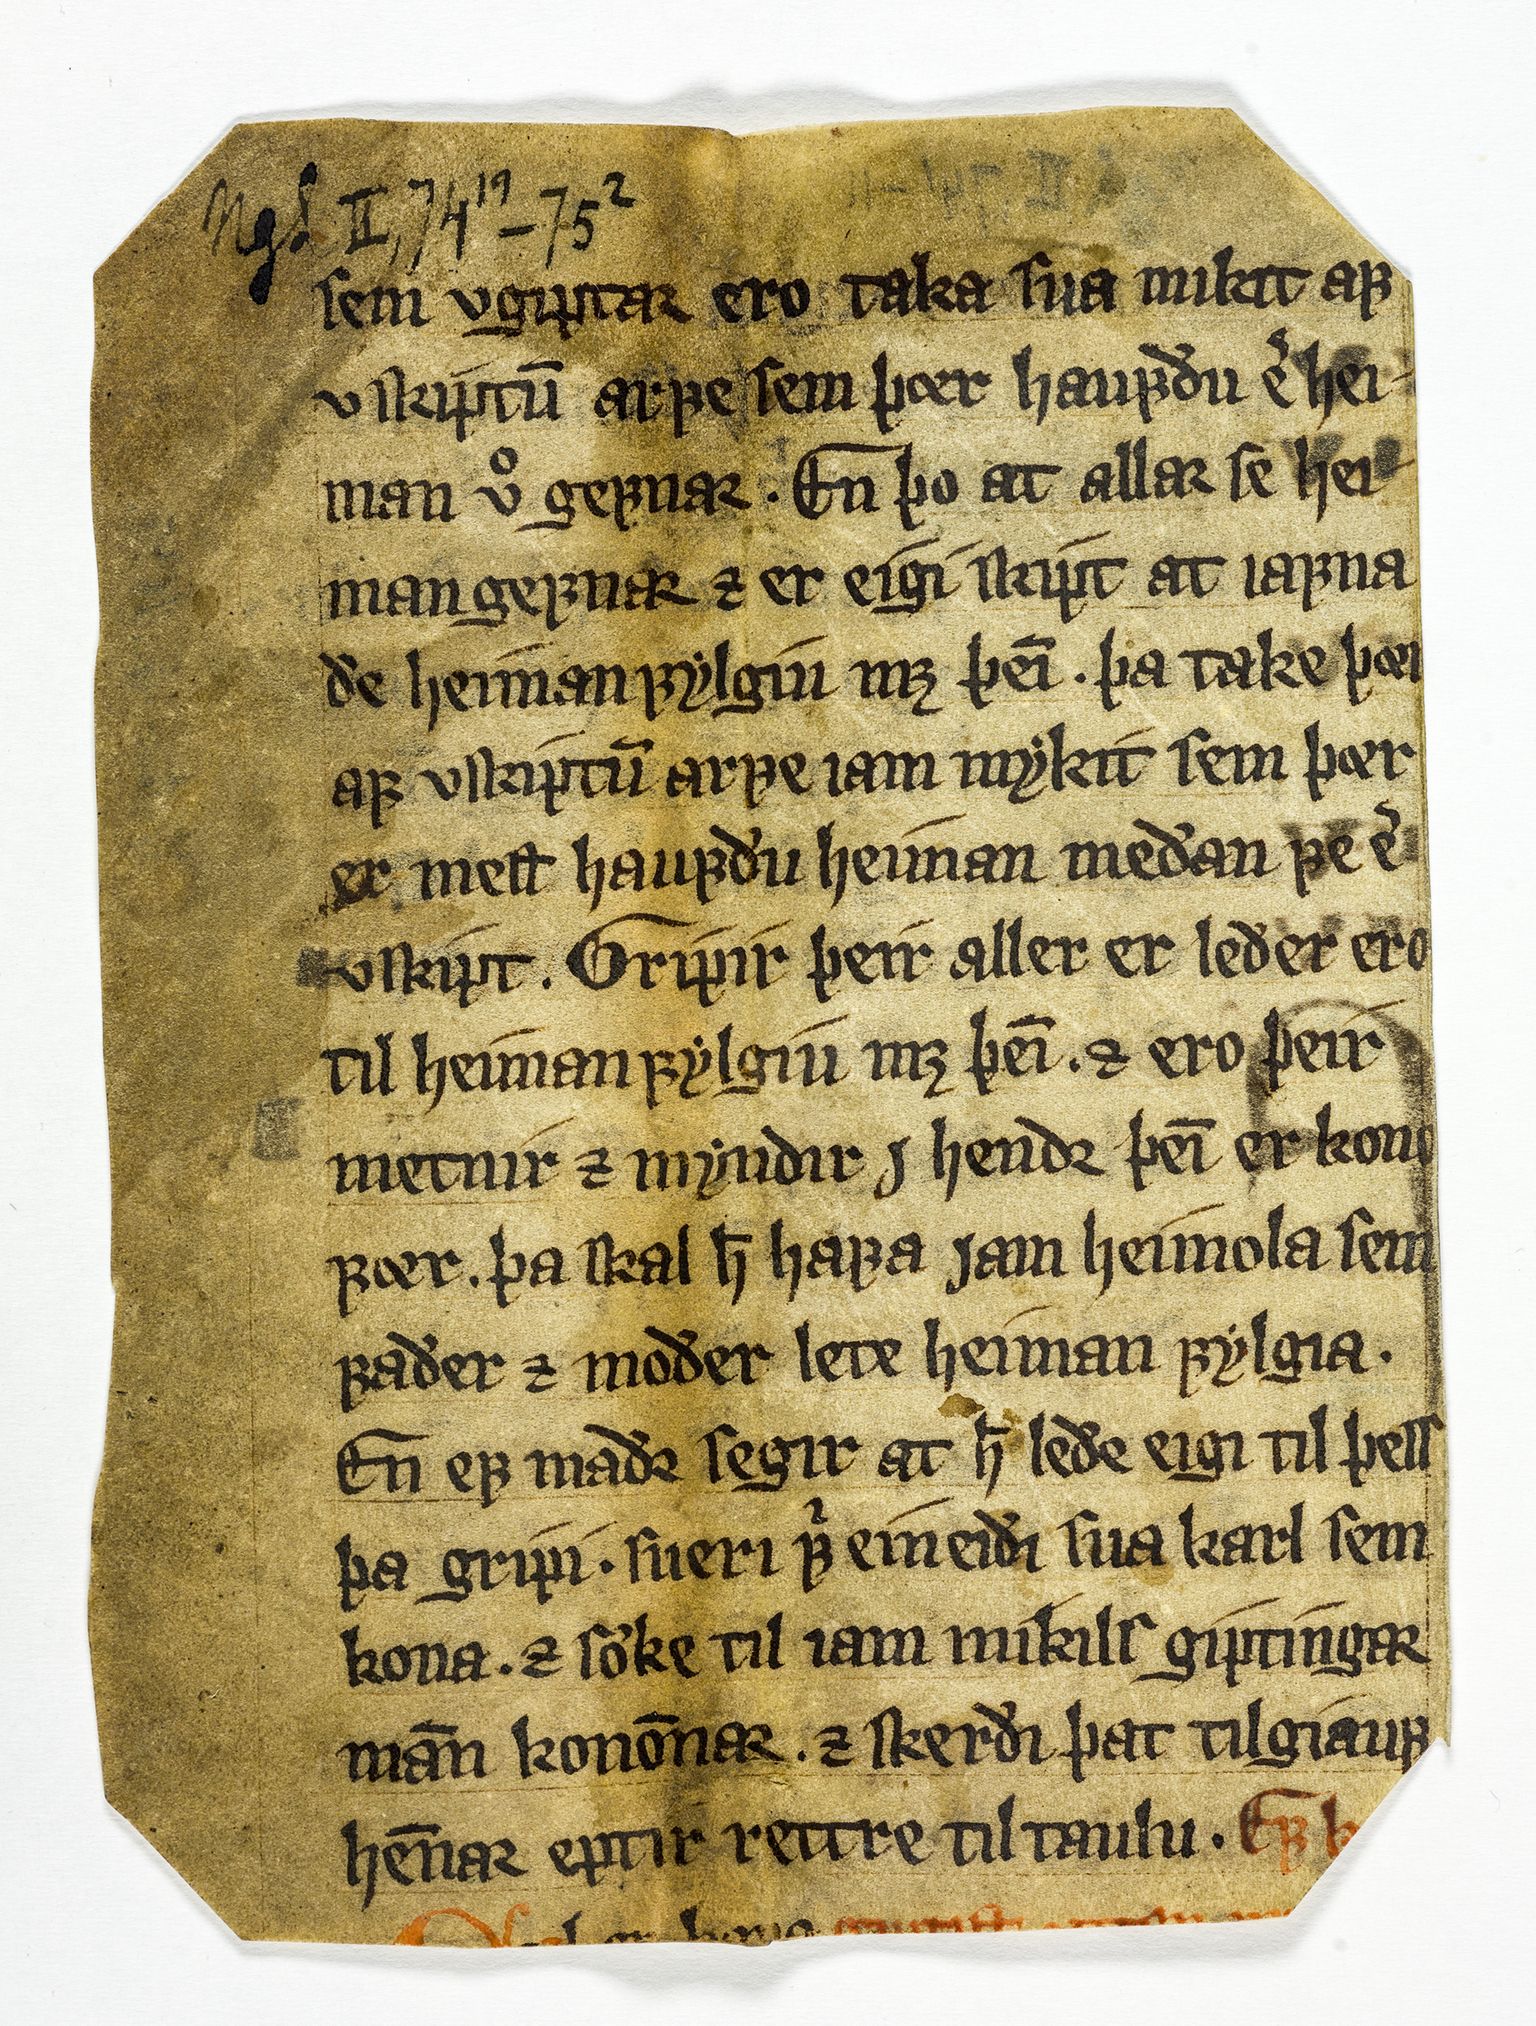 NgL II, 74¹⁹–75²
sem vgiptar ero taka sua mikit aꝼ
vskiptū arꝼe sem þær hauꝼðu e͛ hei-
man vͦ geꝼnar . En þo at allar se hei-
man geꝼnar ⁊ er eigi skipt at iaꝼna
ðe heimanꝼylgiu mꝫ þeī . þa take þær
aꝼ vskiptū arꝼe iam mykit sem þær
er mest hauꝼðu heiman meðan ꝼe e͛
vskipt . Gripir þeir aller er leðer ero
til heimanꝼylgiu mꝫ þeī . ⁊ ero þeir
metnir ⁊ myndir j hendꝛ þeī er kono
ꝼær . þa skal h̄ haꝼa jam heimola sem
ꝼaðer ⁊ moðer lete heiman ꝼylgia .
En eꝼ maðꝛ segir at h̄ leðe eigi til þess
þa gripi . sueri ꝼͥ ein eiði sua karl sem
kona . ⁊ söke til iam mikils giptingar
man̄ konōnar . ⁊ skerði þat tilgiauꝼ
hēnar eptir rettre til taulu . Eꝼ k